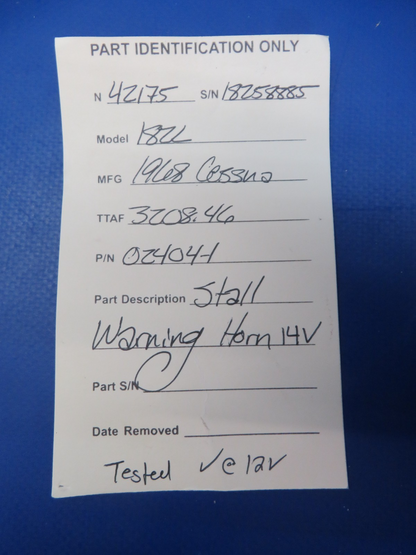 PART IDENTIFICATION ONLY
N 42175 S/N 18258885
Model 182L
MFG 1968 Cessna
TTAF 3208.46
P/N 024041
Part Description Stall
Warning Horn 14V
Part S/N
Date Removed
Tested ✓ @ 12V